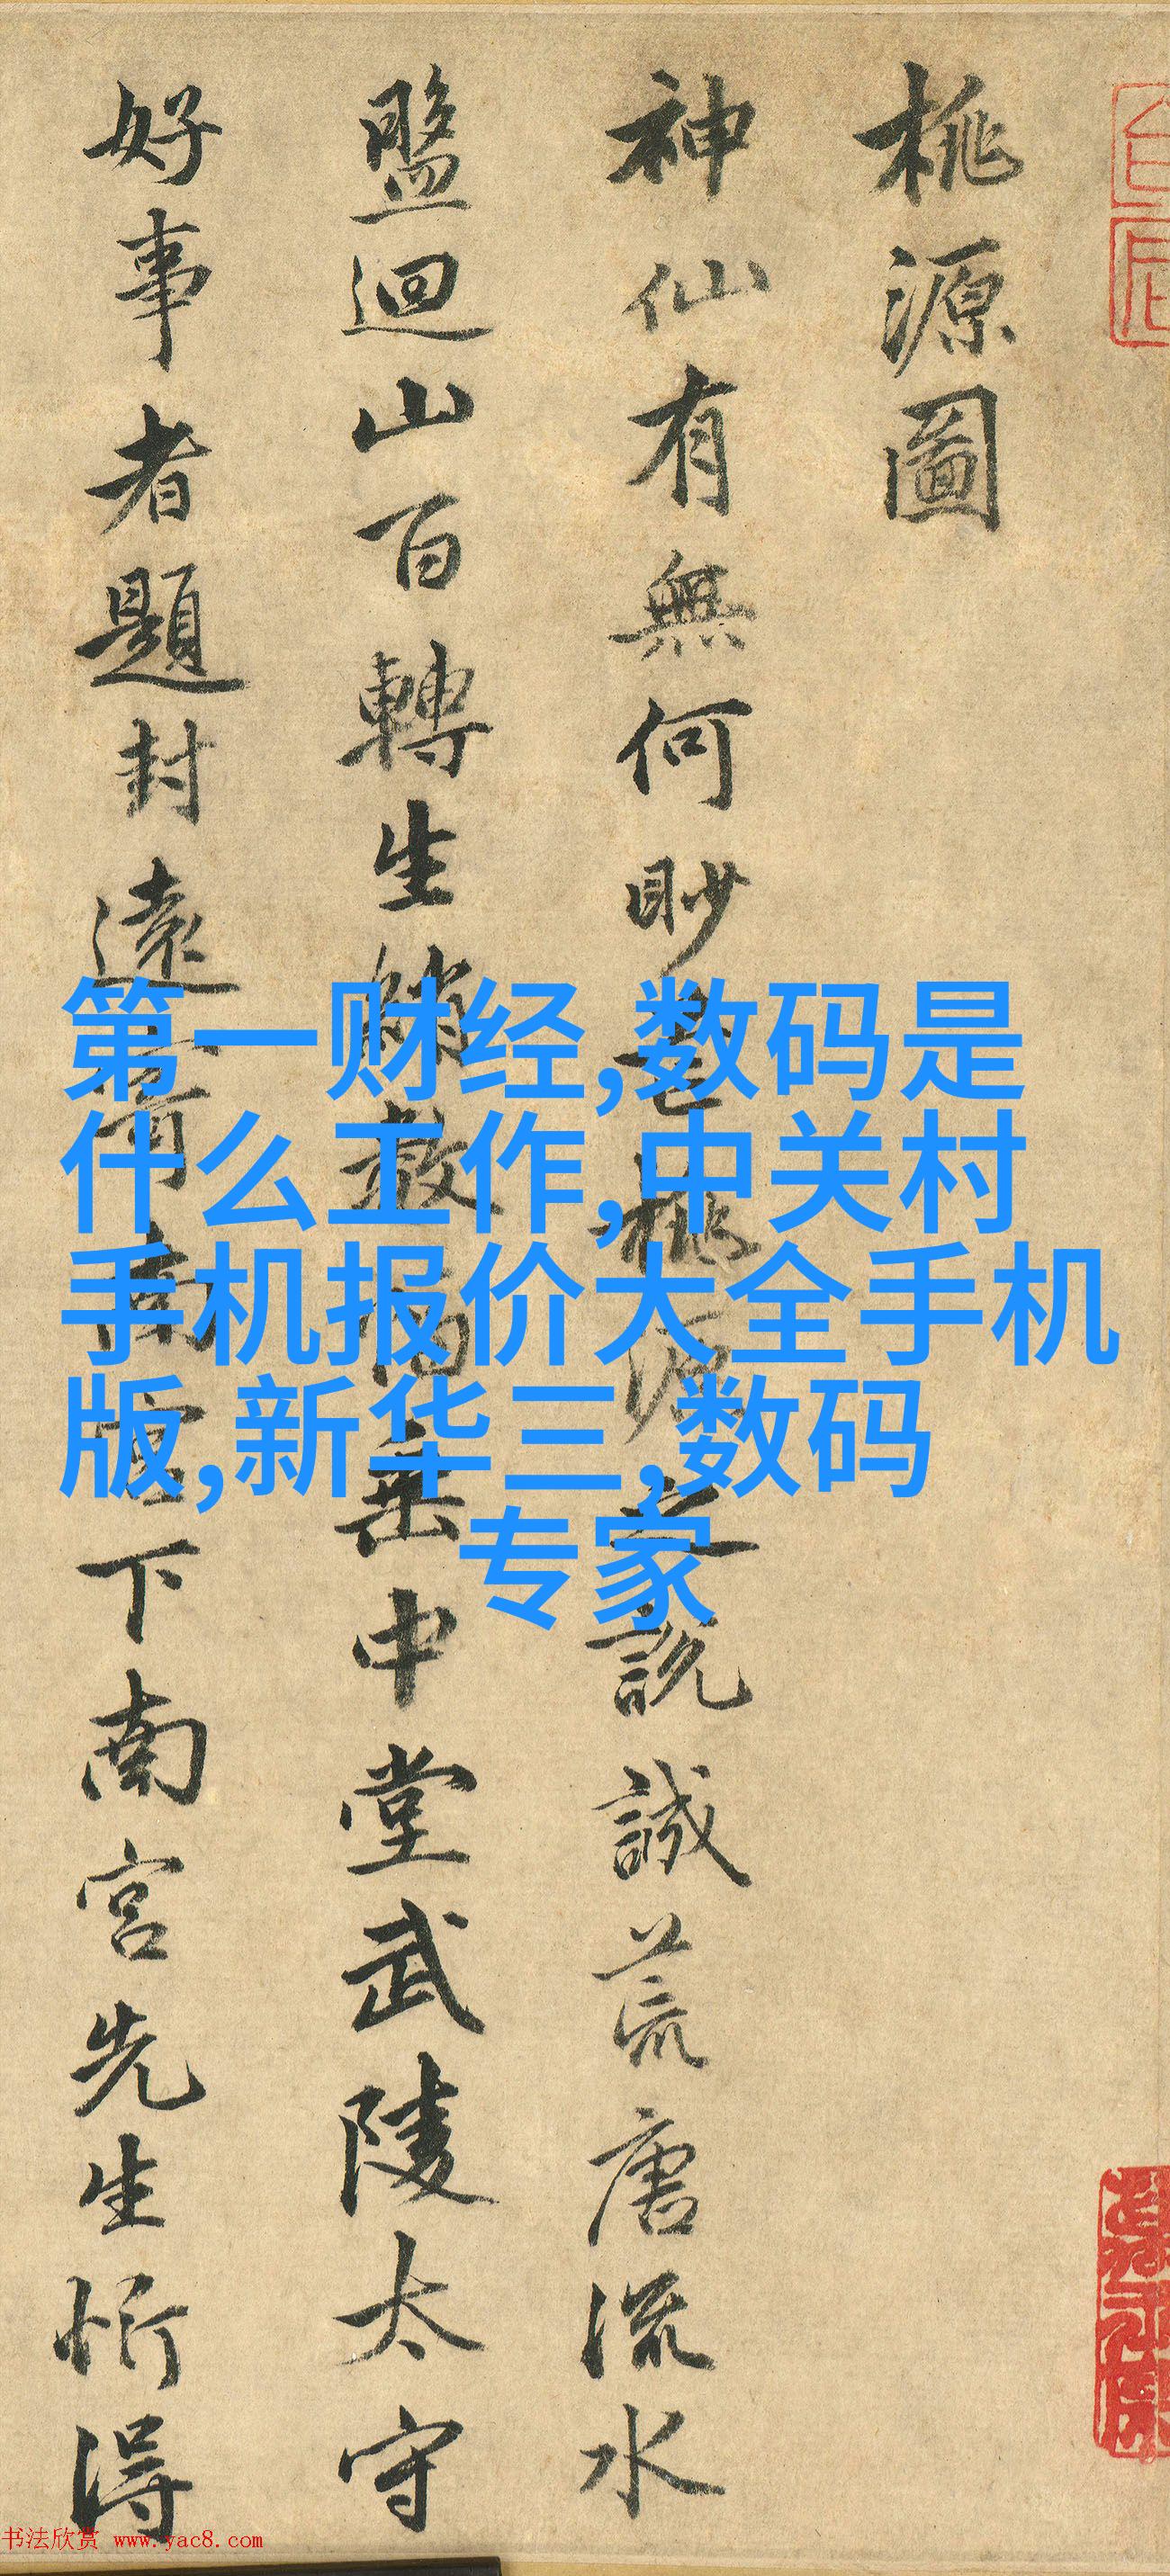 桃源圖
神仙有無何眇芒桃源之說誠荒唐流水
盤迴山百轉生綃數幅垂中堂武陵太守
好事者題封遠寄南宮下南宮先生忻得
第一财经,数码是
什么工作,中关村
手机报价大全手机
版,新华三,数码
专家
书法欣赏 www.yac8.com